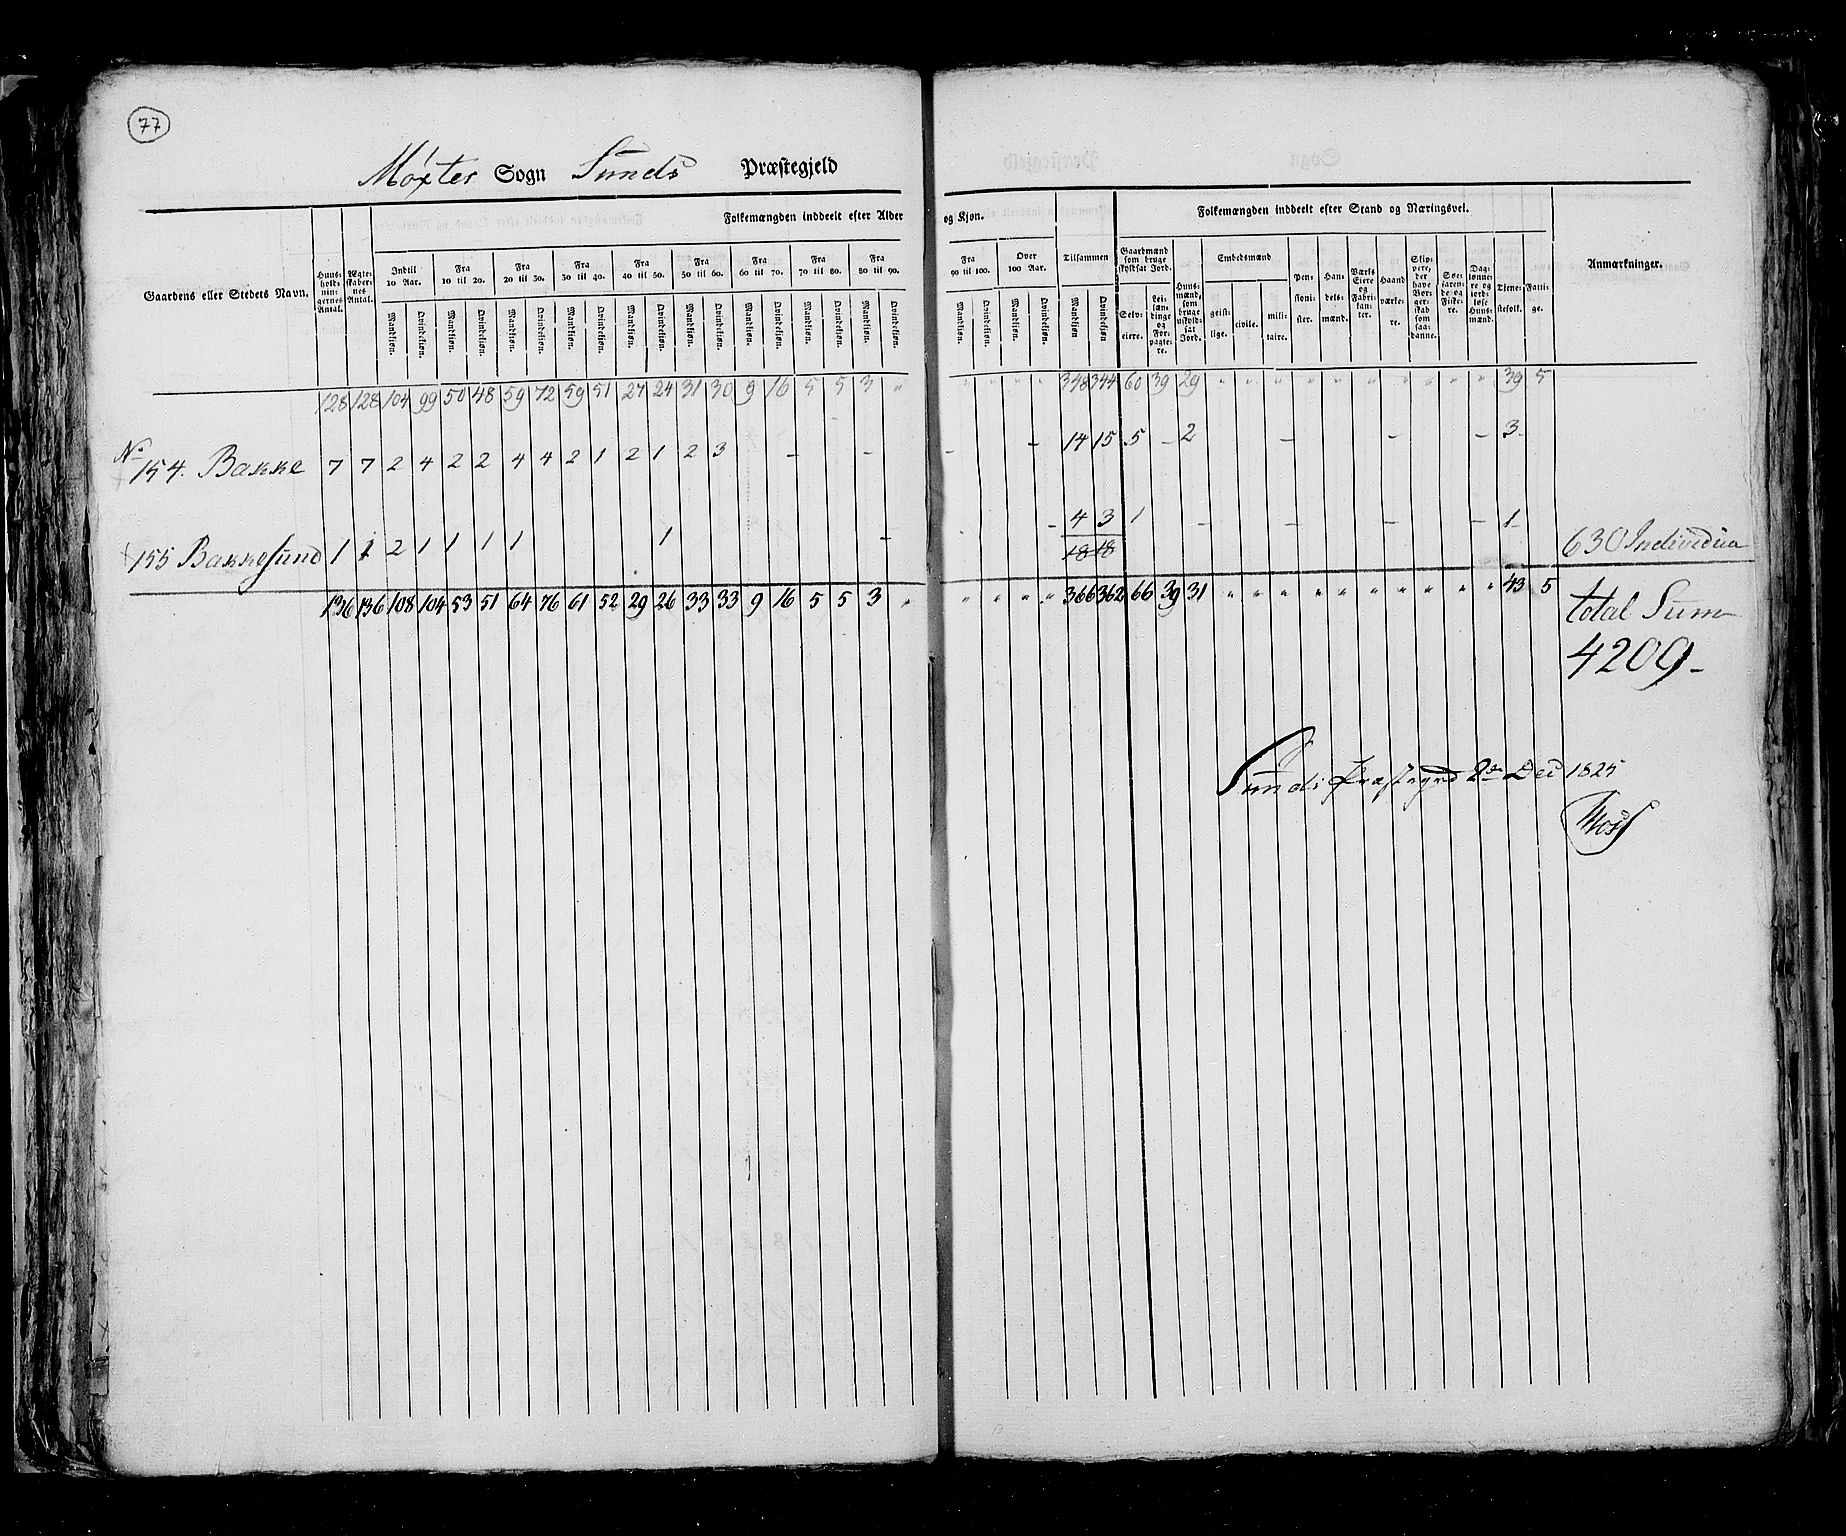 77
Møxter Sogn Sunds Præstegjeld
Folkemængden inddeelt efter Alder og Kjøn.
Folkemængden inddeelt efter Stand og Næringsvei.
Gaardens eller Stedets Navn.
Huus-holdningernes Antal.
Ægteskabernes Antal.
Indtil 10 Aar.
Fra 10 til 20.
Fra 20 til 30.
Fra 30 til 40.
Fra 40 til 50.
Fra 50 til 60.
Fra 60 til 70.
Fra 70 til 80.
Fra 80 til 90.
Fra 90 til 100.
Over 100 Aar.
Tilsammen
Gaardmænd som bruge skyldsat Jord.
Selveiere.
Leilændinge og Forpagtere.
Huusmænd, som bruge uskyldsat Jord.
Embedsmænd
geistlige.
civile.
militaire.
Pensionister.
Handelsmænd.
Værks Eiere og Fabrikanter.
Haandværkere.
Skippere, der have Borgerskab som saadanne.
Søefarende og Fiskere.
Daglønnere og jordløse Huusmænd.
Tjenestefolk.
Fattige.
Anmærkninger.
Mandkjøn. Qvindekjøn. Mandkjøn. Qvindekjøn. Mandkjøn. Qvindekjøn. Mandkjøn. Qvindekjøn. Mandkjøn. Qvindekjøn. Mandkjøn. Qvindekjøn. Mandkjøn. Qvindekjøn. Mandkjøn. Qvindekjøn. Mandkjøn. Qvindekjøn. Mandkjøn. Qvindekjøn. Mandkjøn. Qvindekjøn. Mandkjøn Qvindekjøn
128 128 104 99 50 48 59 72 59 51 27 24 31 30 9 16 5 5 3 " " " " " 348 344 60 39 29 " " " " " " " " " " 39 5
No 154. Bakke 7 7 2 4 2 2 4 4 2 1 2 1 2 3 - - - - 14 15 5 - 2 - - - 3
155 Bakkesund 1 1 2 1 1 1 1 1 - - - 4 3 1 - - - - 1 630 Individua
18 18
136 136 108 104 53 51 64 76 61 52 29 26 33 33 9 16 5 5 3 " " " " " 366 362 66 39 31 " " " " " " " " " " 43 5 total Sum
4209-
Sunds Præstegrd 2de Dec 1825